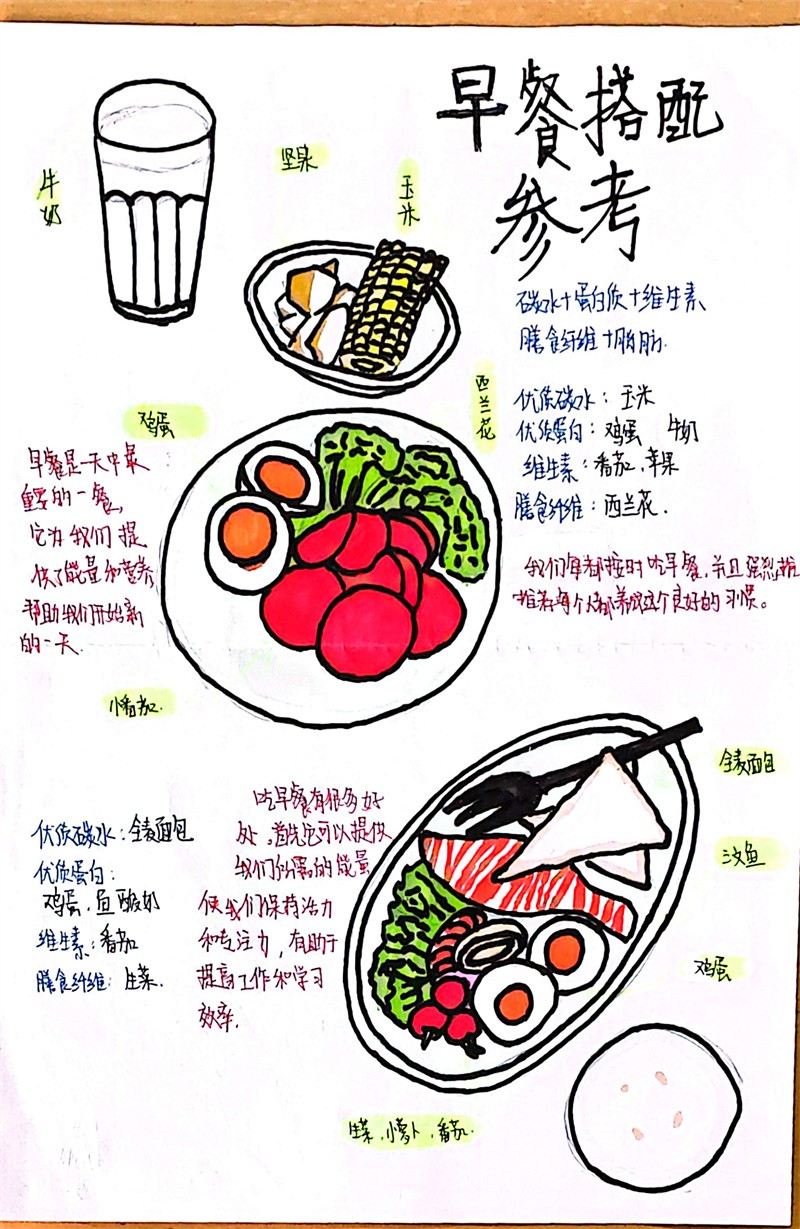 早餐搭配
参考
牛奶
坚果
玉米
碳水+蛋白质+维生素
膳食纤维+脂肪.
西兰花
鸡蛋
优质碳水：玉米
优质蛋白：鸡蛋 牛奶
维生素：番茄、苹果
膳食纤维：西兰花.
早餐是一天中最
重要的一餐,
它为我们提
供了能量和营养,
帮助我们开始新
的一天.
我们每都按时吃早餐,并且强烈推
推荐每个人都养成这个良好的习惯。
小番茄.
全麦面包
吃早餐有很多好
处,首先它可以提供
我们所需的能量
使我们保持活力
和专注力,有助于
提高工作和学习
效率.
优质碳水：全麦面包
优质蛋白：
鸡蛋、鱼 酸奶
维生素：番茄
膳食纤维：生菜.
鱼
鸡蛋
生菜、小萝卜、番茄.